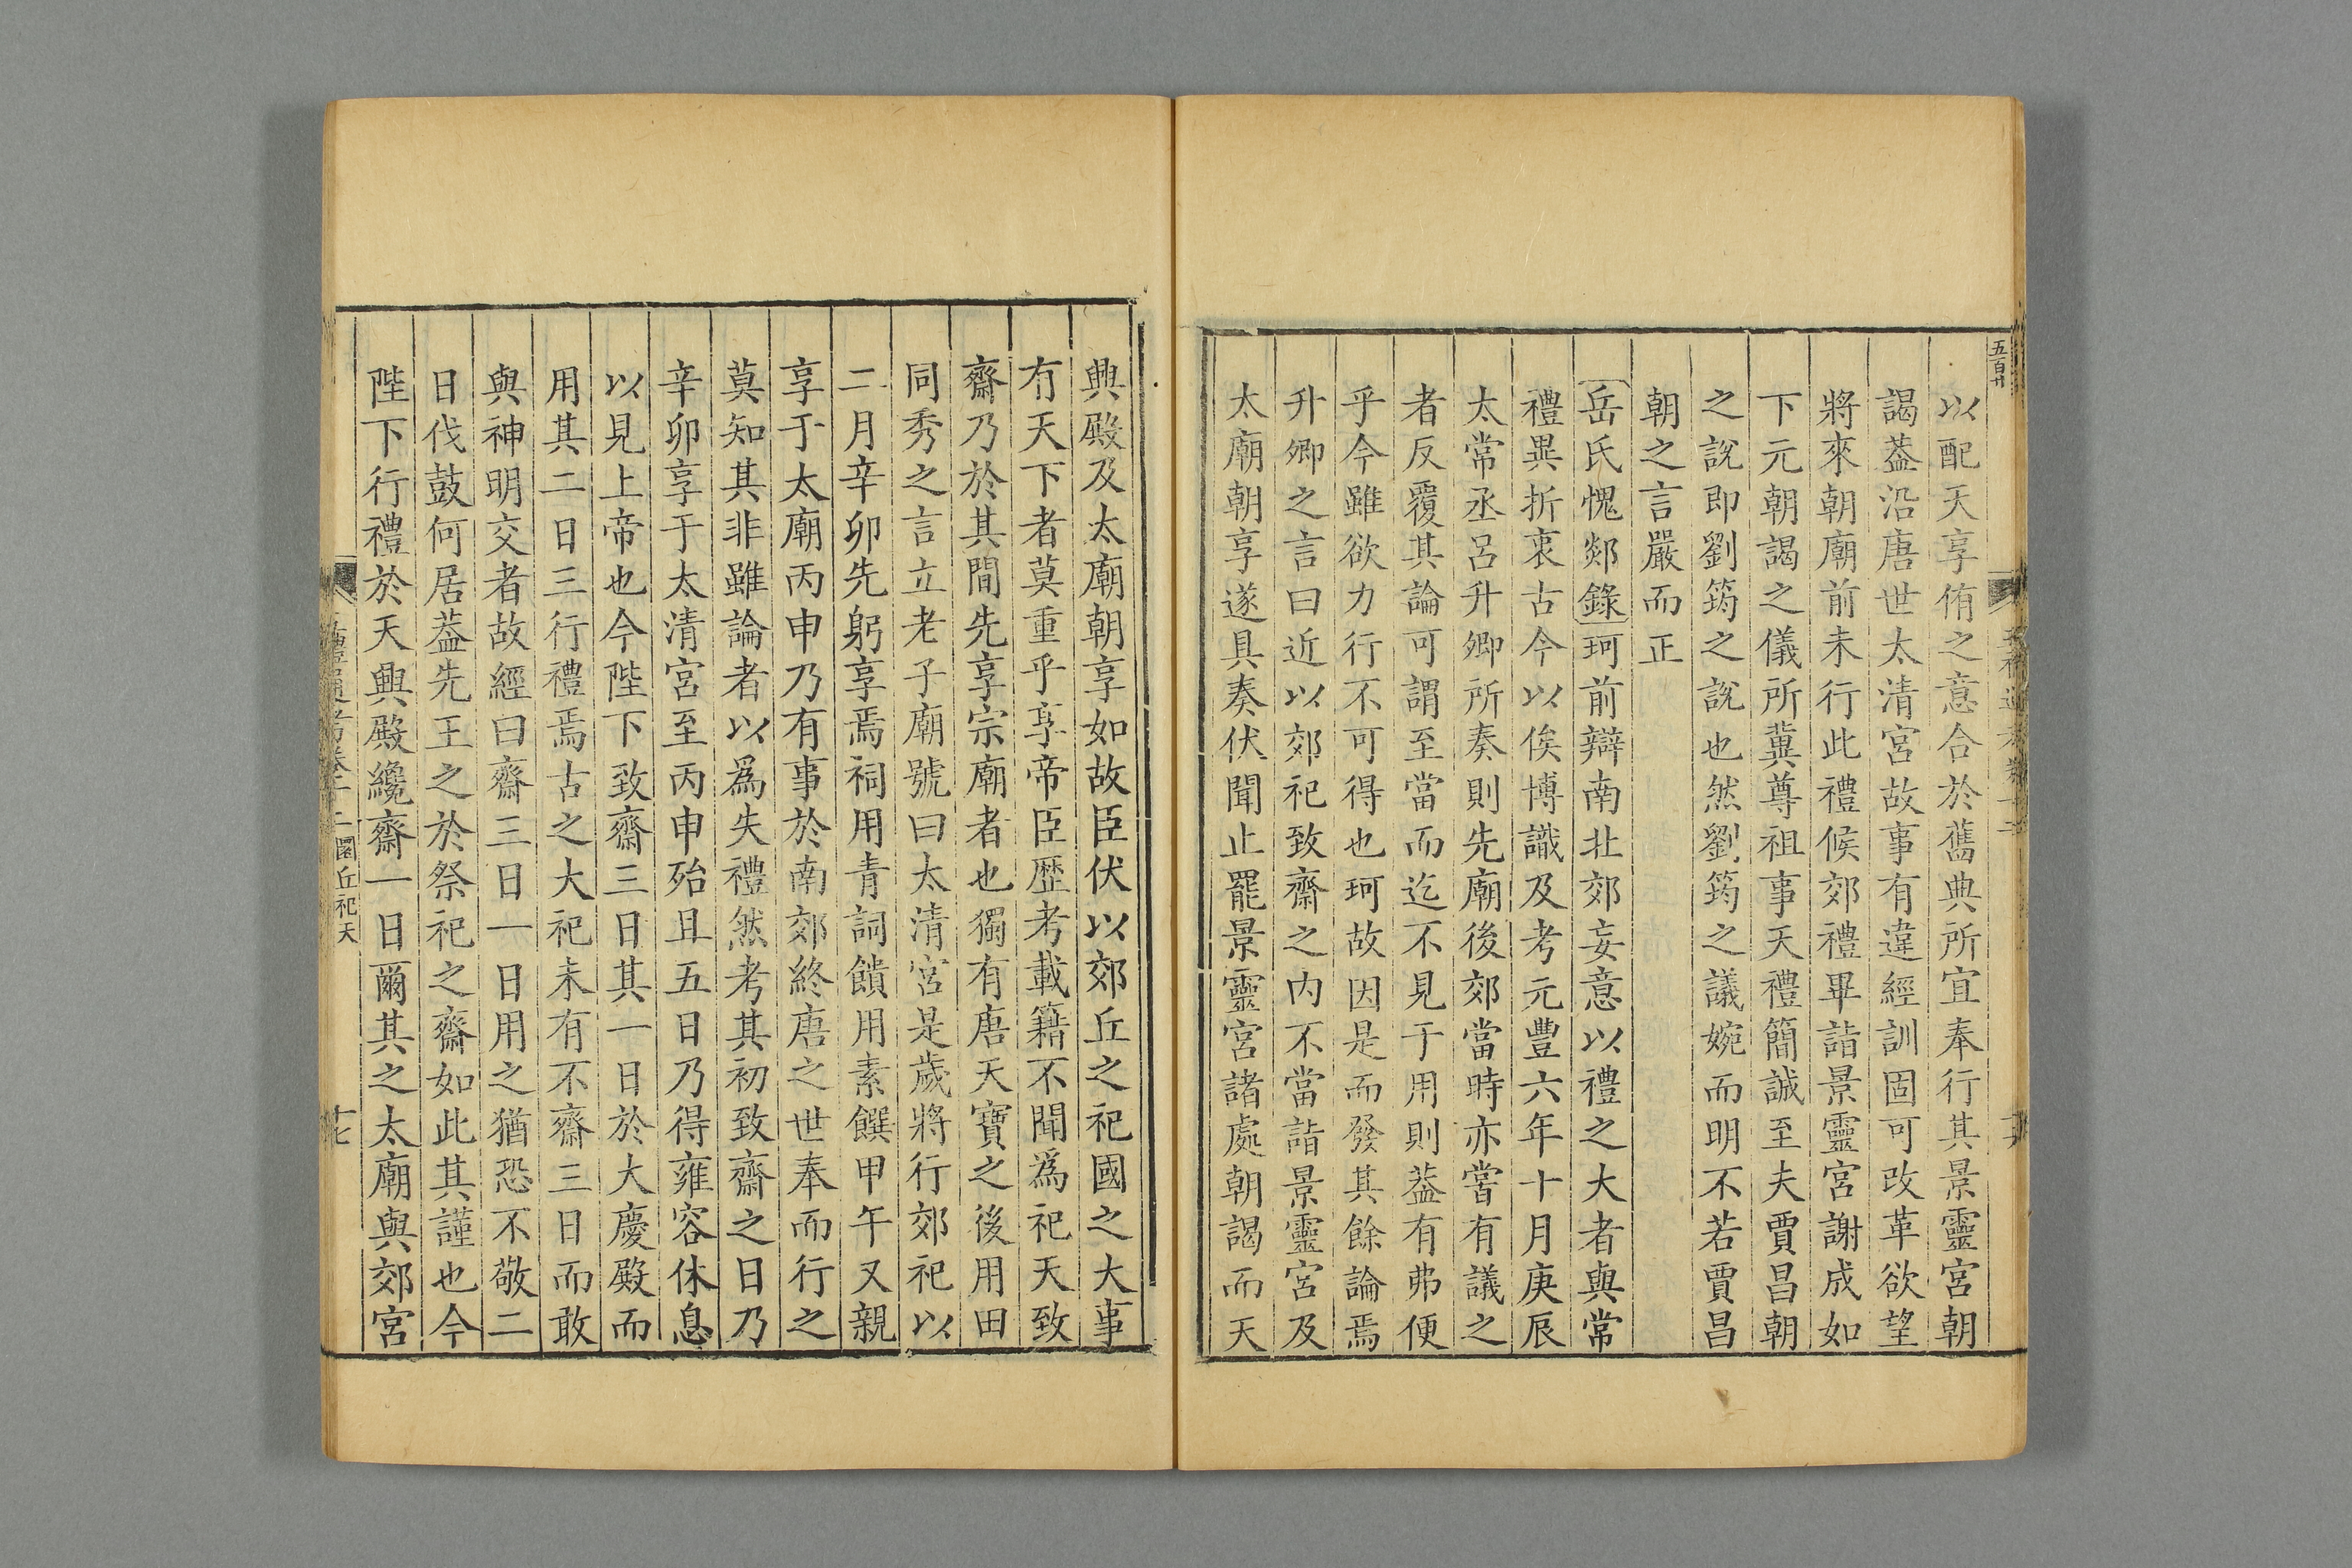 五百廿
以配天享侑之意合於舊典所宜奉行其景靈宮朝
謁葢沿唐世太清宮故事有違經訓固可改革欲望
將來朝廟前未行此禮候郊禮畢詣景靈宮謝成如
下元朝謁之儀所冀尊祖事天禮簡誠至夫賈昌朝
之說即劉筠之說也然劉筠之議婉而明不若賈昌
朝之言嚴而正
岳氏愧郯錄珂前辯南北郊妄意以禮之大者與常
禮異折衷古今以俟博識及考元豐六年十月庚辰
太常丞呂升卿所奏則先廟後郊當時亦嘗有議之
者反覆其論可謂至當而迄不見于用則葢有弗便
乎今雖欲力行不可得也珂故因是而發其餘論焉
升卿之言曰近以郊祀致齋之内不當詣景靈宮及
太廟朝享遂具奏伏聞止罷景靈宮諸處朝謁而天
興殿及太廟朝享如故臣伏以郊丘之祀國之大事
有天下者莫重乎享帝臣歷考載籍不聞爲祀天致
齋乃於其間先享宗廟者也獨有唐天寶之後用田
同秀之言立老子廟號曰太清宮是歲將行郊祀以
二月辛卯先躬享焉祠用青詞饋用素饌甲午又親
享于太廟丙申乃有事於南郊終唐之世奉而行之
莫知其非雖論者以爲失禮然考其初致齋之日乃
辛卯享于太清宮至丙申殆且五日乃得雍容休息
以見上帝也今陛下致齋三日其一日於大慶殿而
用其二日三行禮焉古之大祀未有不齋三日而敢
與神明交者故經曰齋三日一日用之猶恐不敬二
日伐鼓何居葢先王之於祭祀之齋如此其謹也今
陛下行禮於天興殿纔齋一日爾其之太廟與郊宮
圜丘祀天
十七